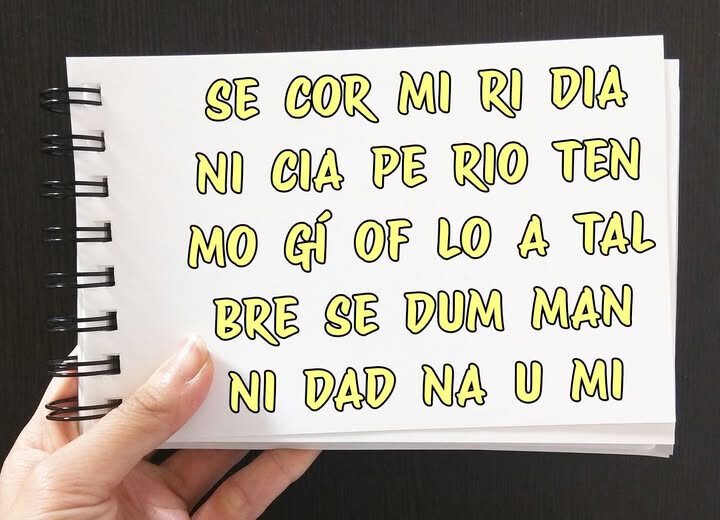 SE COR MI RI DIA
NI CIA PE RIO TEN
MO GÍ OF LO A TAL
BRE SE DUM MAN
NI DAD NA U MI